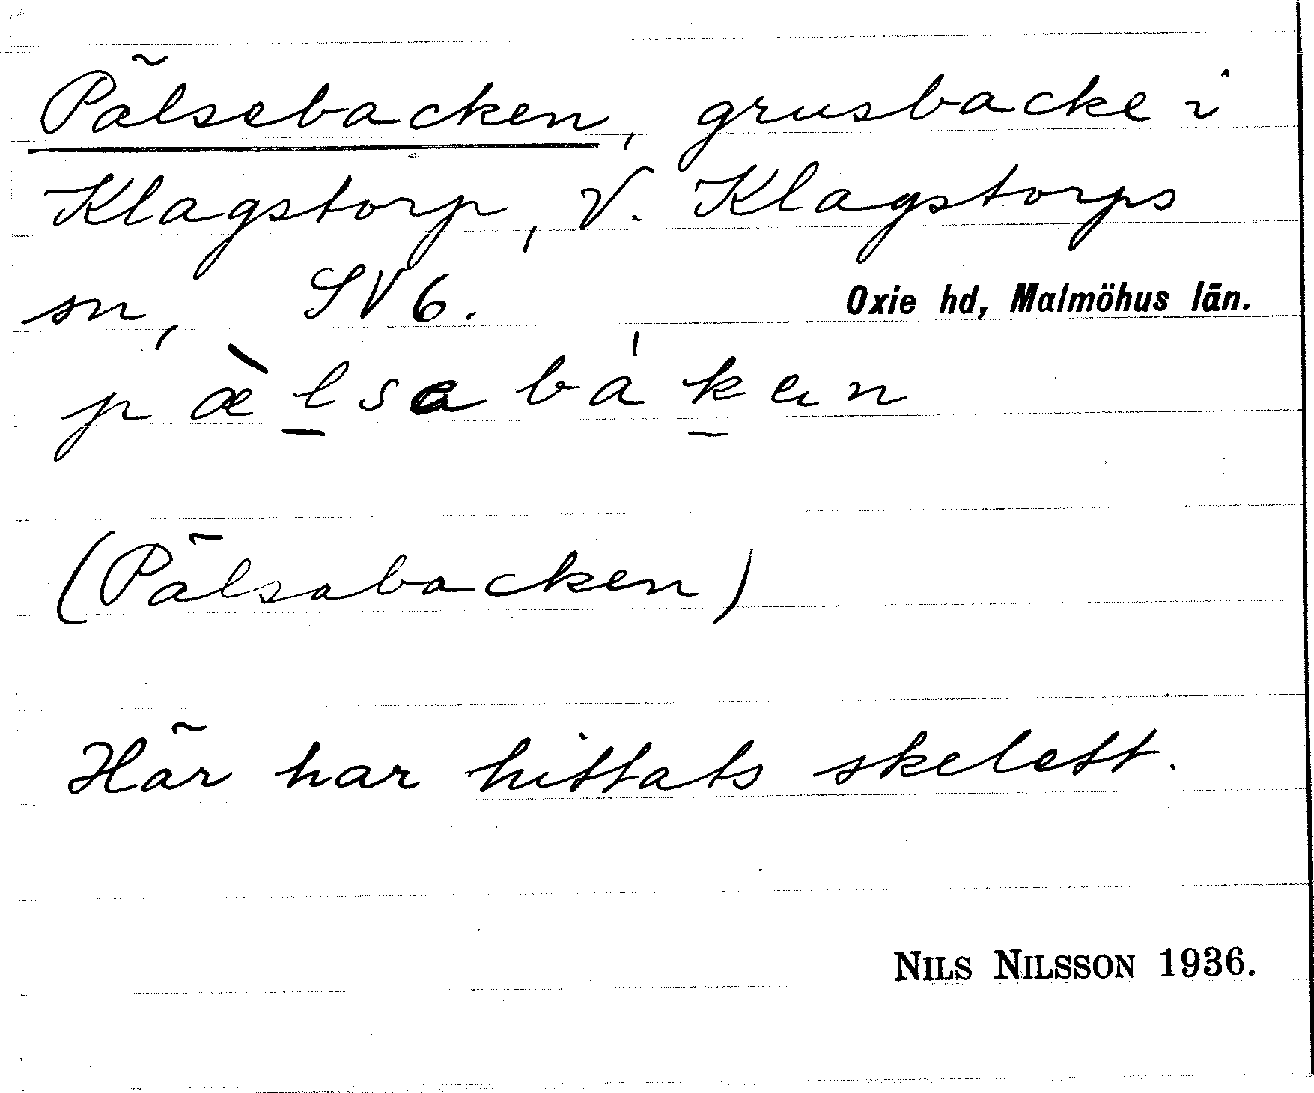 Pälsebacken, grusbacke i
Klagstorp, V. Klagstorps
sn, SV 6. Oxie hd, Malmöhus län.
pæ̀lsabákan
(Pälsabacken)
Här har hittats skelett.
NILS NILSSON 1936.